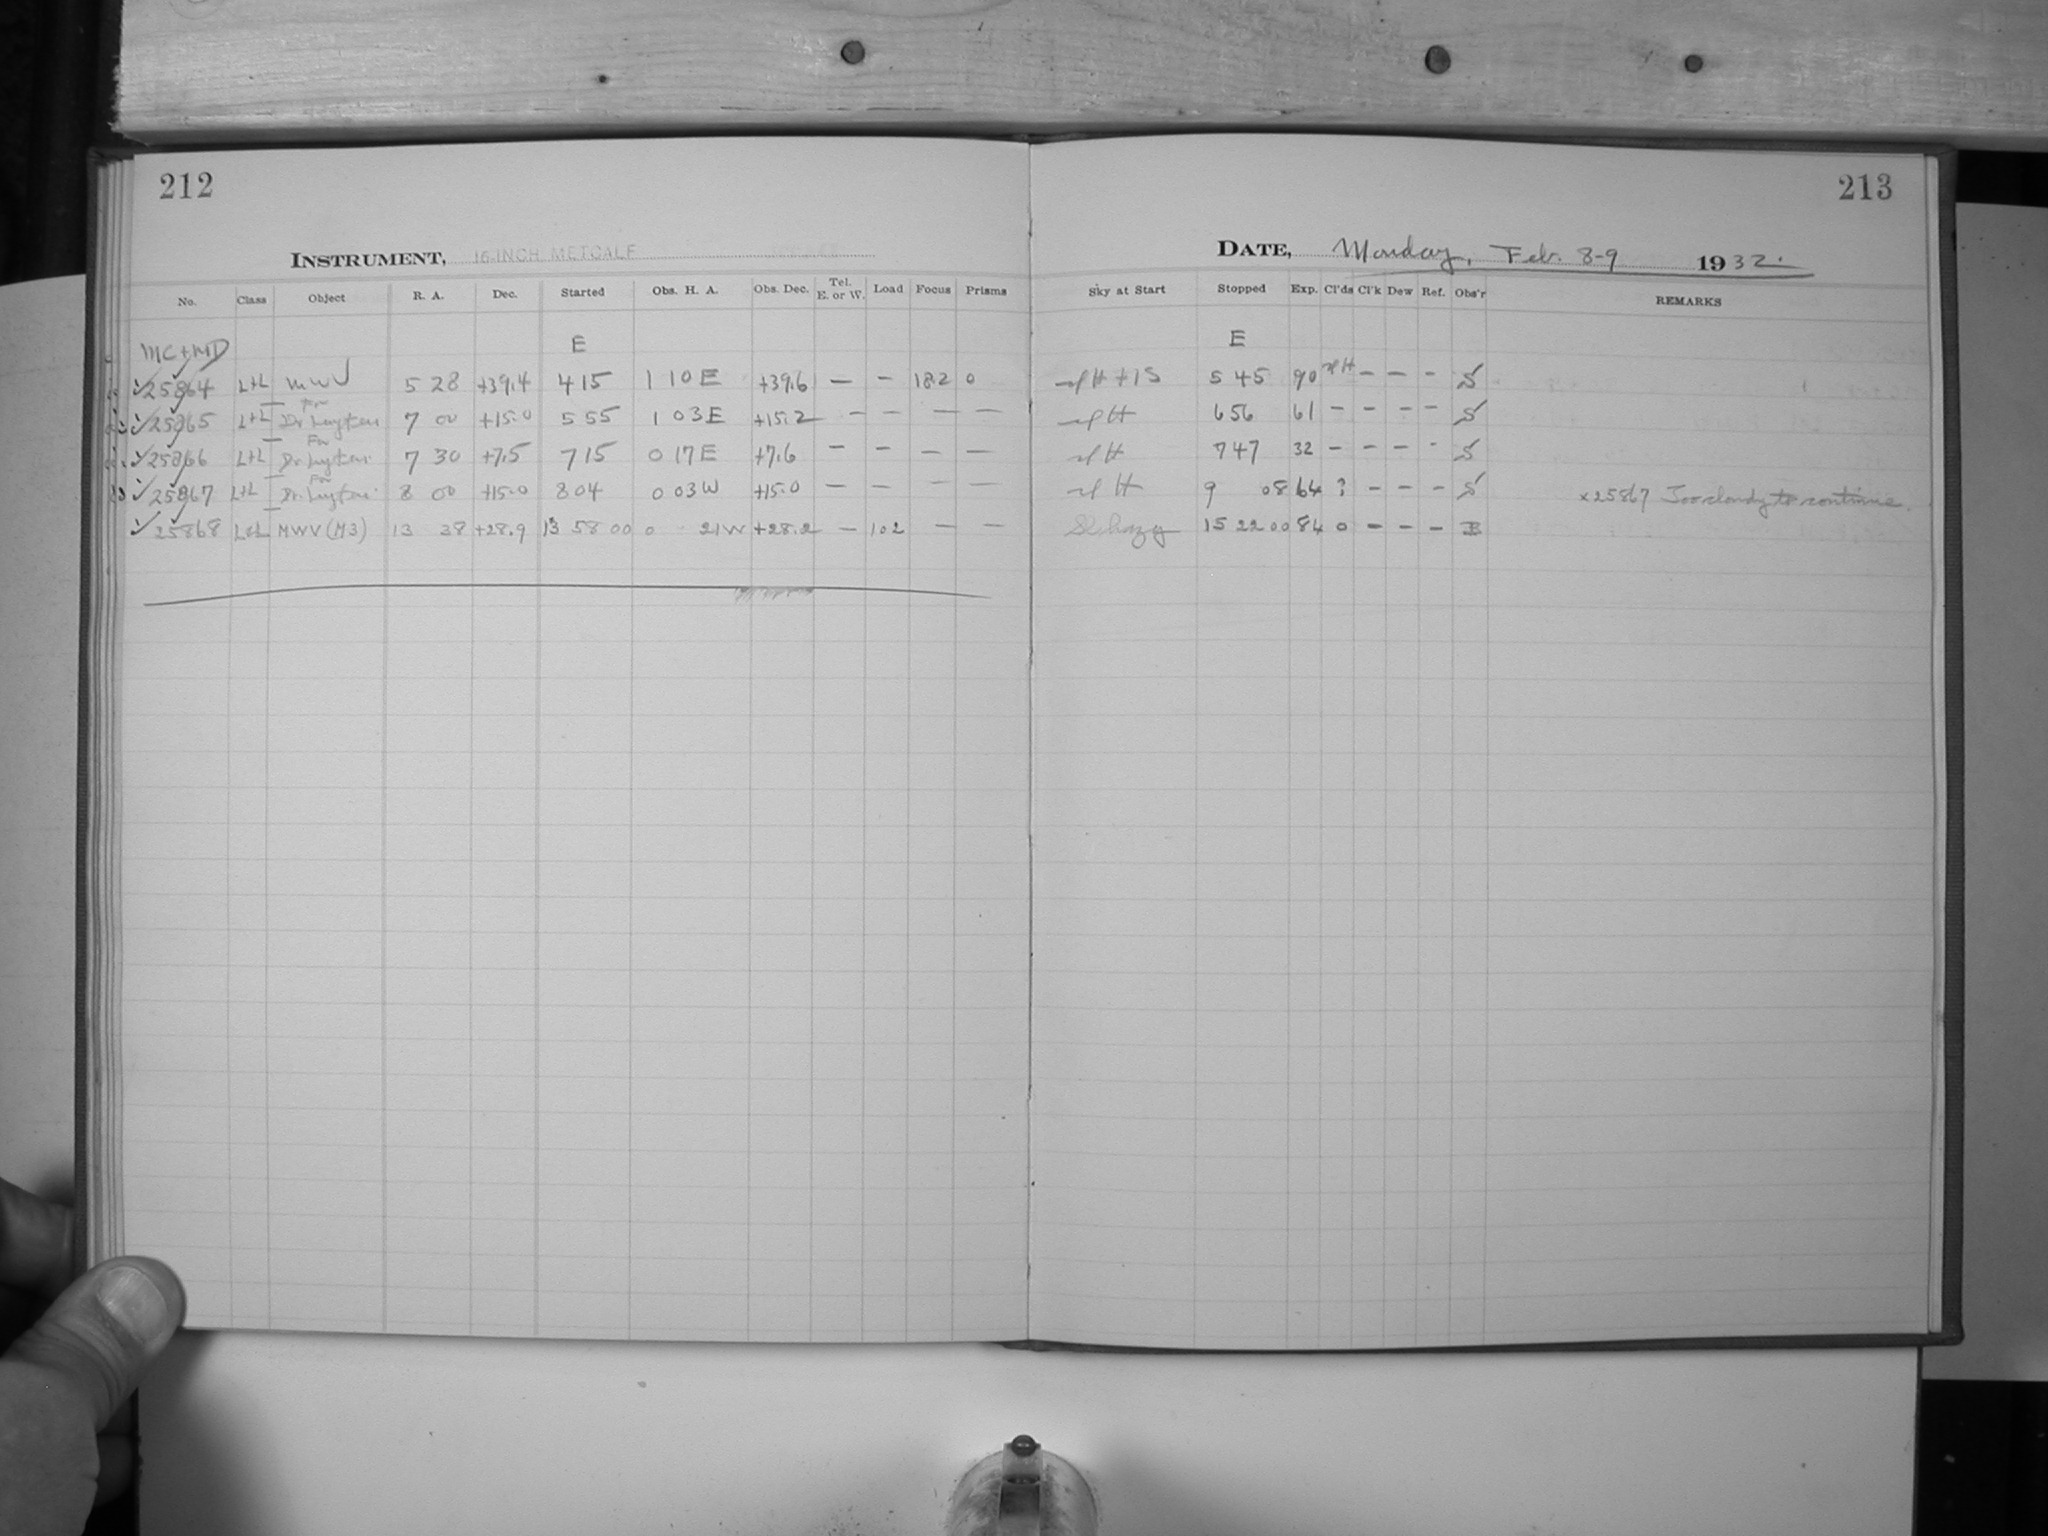 212
INSTRUMENT, 16-INCH METCALF
No. Class Object R. A. Dec. Started Obs. H. A. Obs. Dec. Tel. E. or W. Load Focus Prisms
MC+MD E
25864 L+L MWV 5 28 +39.4 4 15 1 10 E +39.6 — – 18.2 0
25865 L+L For Dr Luyten 7 00 +15.0 5 55 1 03 E +15.2 — — — —
25866 L+L For Dr. Luyten 7 30 +7.5 7 15 0 17 E +7.6 — — — —
25867 L+L For Dr. Luyten 8 00 +15.0 8 04 0 03 W +15.0 — — — —
25868 L+L MWV (M3) 13 38 +28.9 13 58 00 0 21 W +28.2 — 102 — —
213
DATE, Monday, Feb. 8-9 1932.
Sky at Start Stopped Exp. Cl'ds Cl'k Dew Ref. Obs'r REMARKS
E
H + 1S 5 45 90 H – – – S
H 6 56 61 – – – – S
H 7 47 32 – – – – S
H 9 08 64 ? – – – S × 25867 Too cloudy to continue.
Sl. hazy 15 22 00 84 0 – – – B